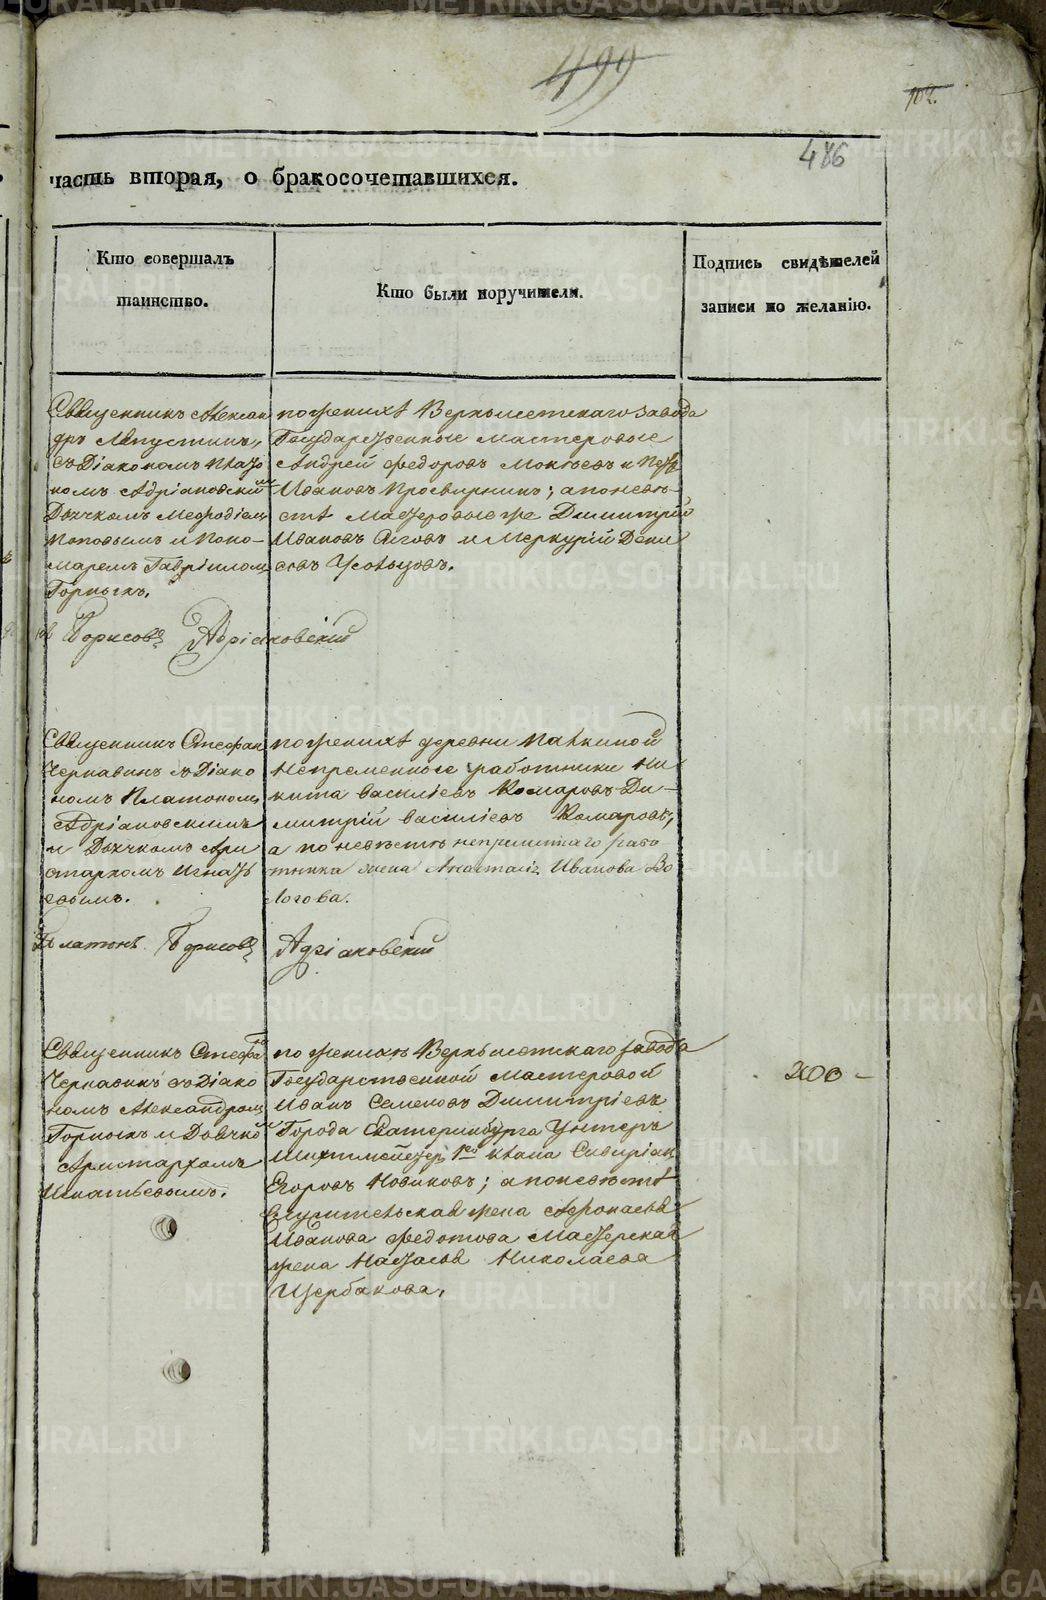 499
102.
486
часть вторая, о бракосочетавшихся.
Кто совершалъ
таинство.
Кто были поручители.
Подпись свидѣтелей
записи по желанію.
Священникъ Алексан
дръ Лапустинъ,
съ Діакономъ Плато
номъ Адріановскимъ
Дьячкомъ Меѳодіемъ
Поповымъ и Поно-
маремъ Гавріиломъ
Горныхъ.
по женихѣ Верхъисетскаго завода
Государственные мастеровые
Андрей Федоровъ и Петръ
Ивановъ Просвирнинъ; а по невѣ-
стѣ Мастеровые же Димитрій
Ивановъ и Меркурій Дени
совъ Усольцовъ.
Борисовъ Адріановскій
Священникъ Стефанъ
Чернавинъ съ Діако
номъ Платономъ
Адріановскимъ
и Дьячкомъ Ари
стархомъ Игнать
евымъ.
по женихѣ деревни Палкиной
Непременные работники Ни-
кита Василіевъ Комаровъ Ди-
митрій Василіевъ Комаровъ;
а по невѣстѣ непремѣннаго рабо
тника жена Анастасія Иванова Во
логова.
Платонъ Борисовъ Адріановскій
Священникъ Стефанъ
Чернавинъ съ Діако
номъ Александромъ
Горныхъ и Дьячкомъ
Аристархомъ
Игнатьевымъ.
по женихѣ Верхъисетскаго завода
Государственной Мастеровой
Иванъ Семеновъ Димитріевъ
Города Екатеринбурга Унтеръ
Шихтмейстеръ 1го класа
Егоровъ Новиковъ; а по невѣстѣ
Служительская жена Афонасья
Иванова Федотова Мастерская
жена Настасья Николаева
Щербакова.
200 –
METRIKI.GASO-URAL.RU